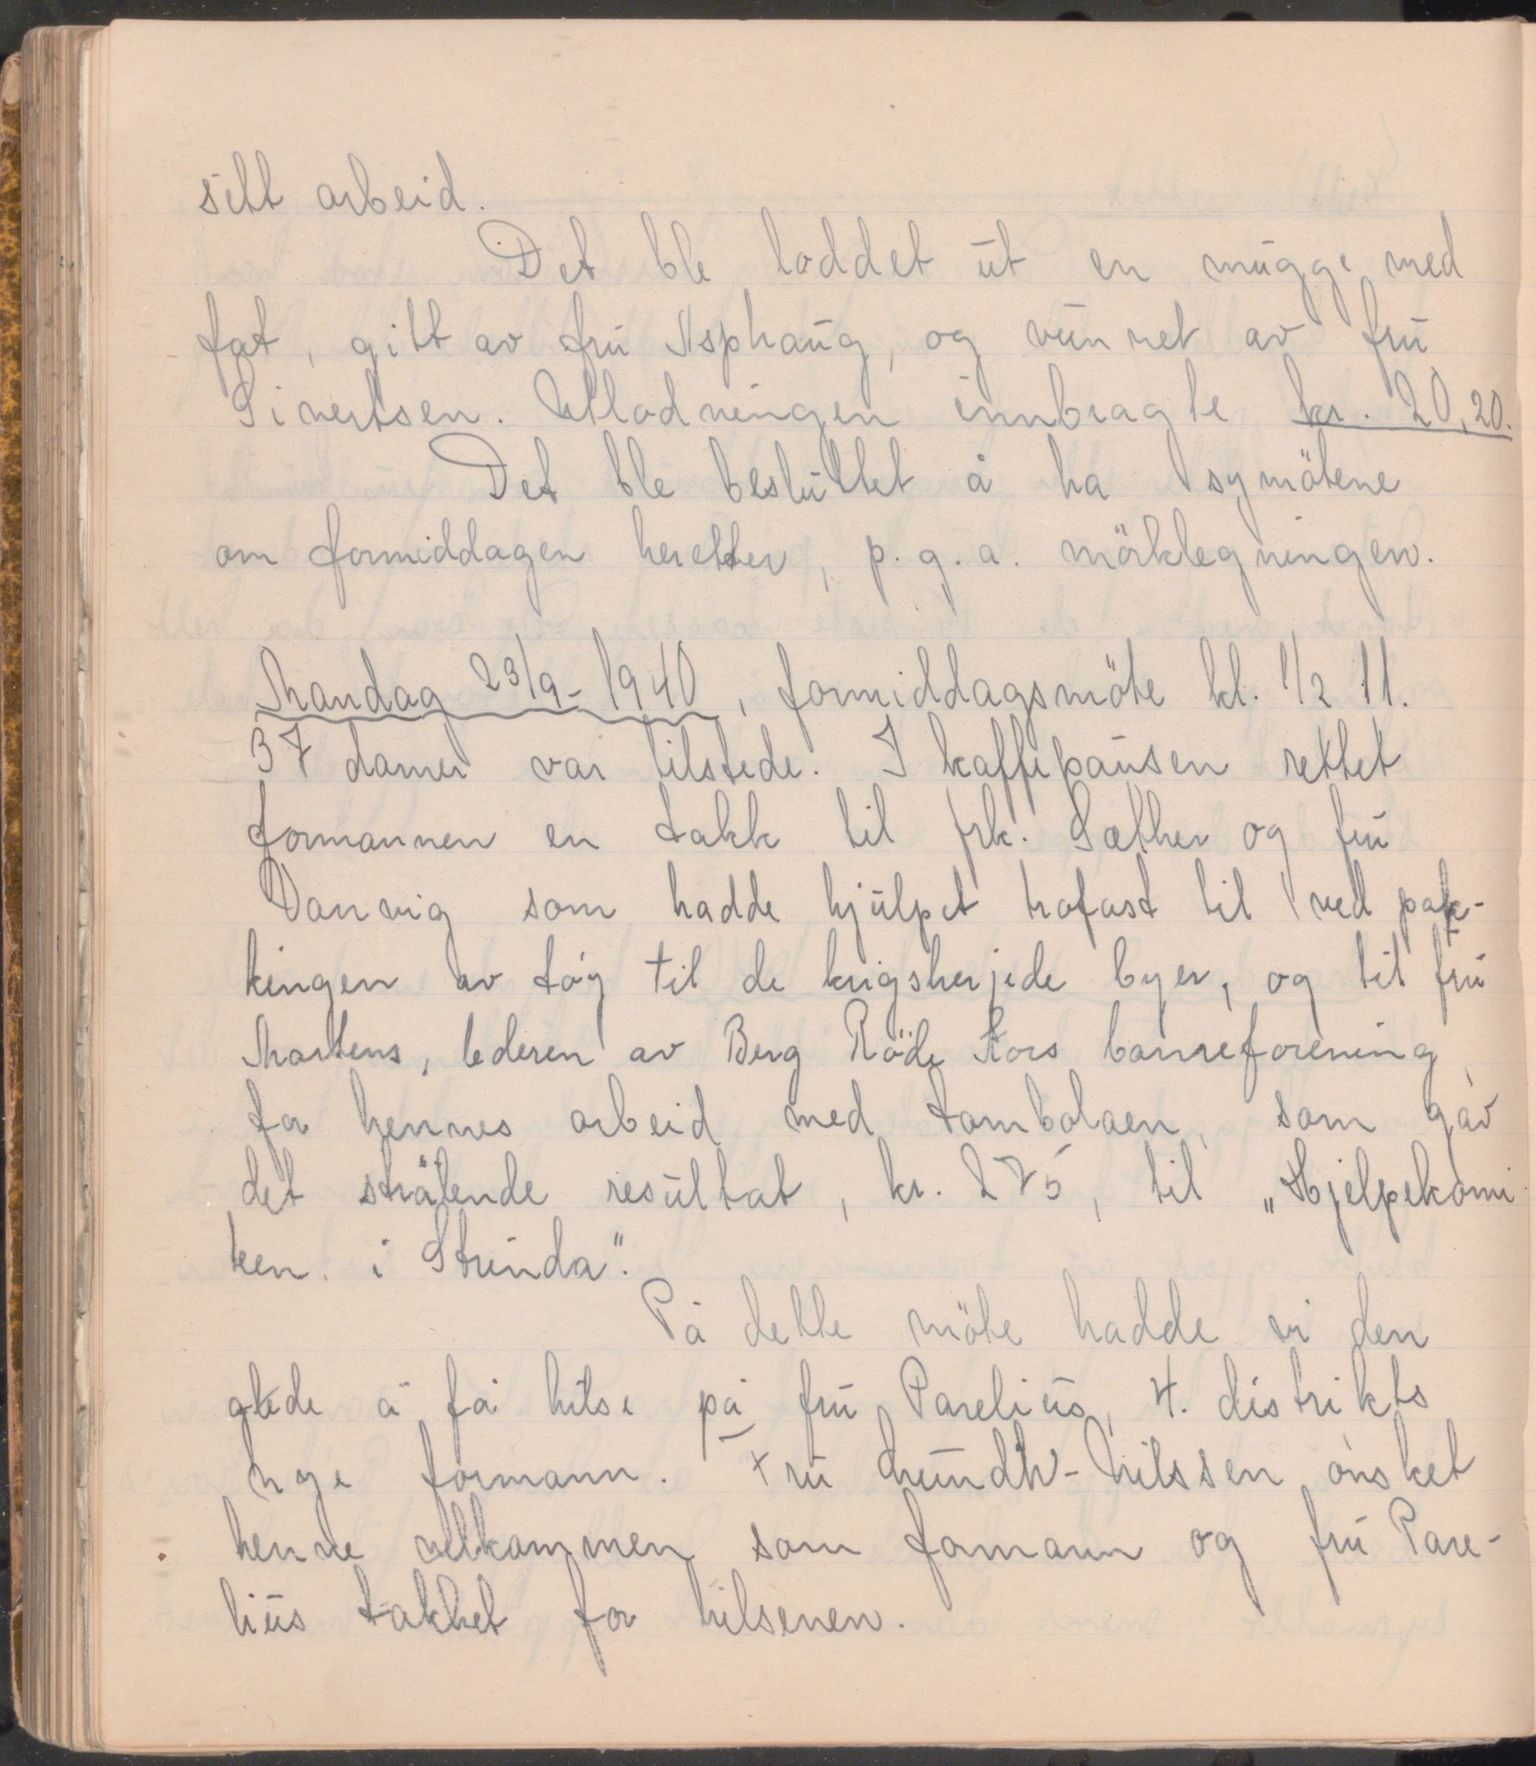 sitt arbeid.
Det ble loddet ut en mugge med
fat, gitt av fru Asphaug, og vunnet av fru
Sivertsen. Utlodningen innbragte kr. 20,20.
Det ble besluttet å ha symötene
om formiddagen heretter, p.g.a. mörklegningen.
Mandag 23/9-1940, formiddagsmöte kl. 1/2 11.
37 damer var tilstede. I kaffepausen rettet
formannen en takk til frk. Sæther og fru
Danvig som hadde hjulpet trofast til ved pak-
kingen av töy til de krigsherjede byer, og til fru
Martens, lederen av Berg Röde Kors barneforening
for hennes arbeid med tombolaen, som gav
det strålende resultat, kr. 275, til „Hjelpekomi
teen i Strinda".
På dette möte hadde vi den
glede å få hilse på fru Parelius, 4. distrikts
nye formann. Fru Lundh-Nilssen önsket
henne velkommen som formann og fru Pare-
lius takket for hilsenen.